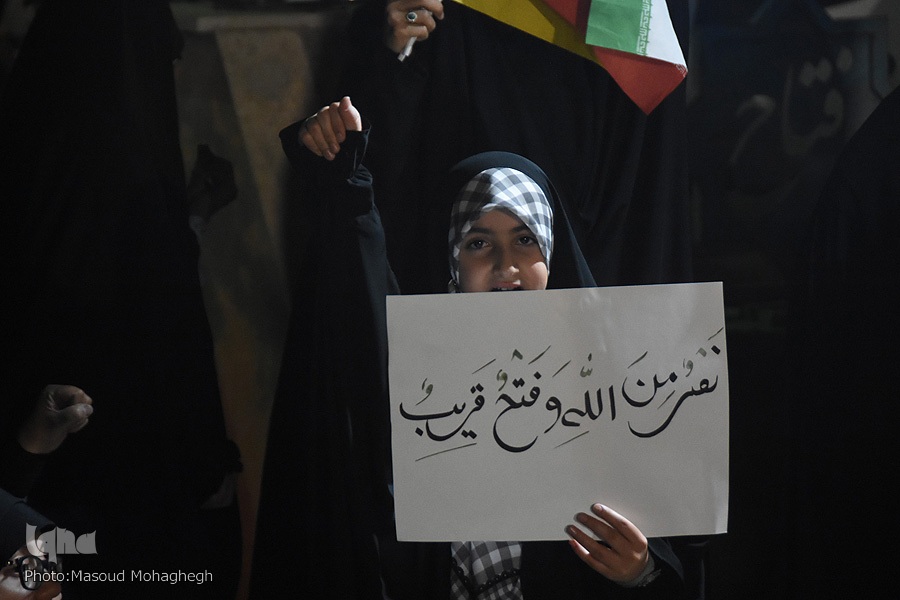 نَصْرٌ مِنَ اللّٰهِ وَ فَتْحٌ قَرِيبٌ
iqna
Photo:Masoud Mohaghegh